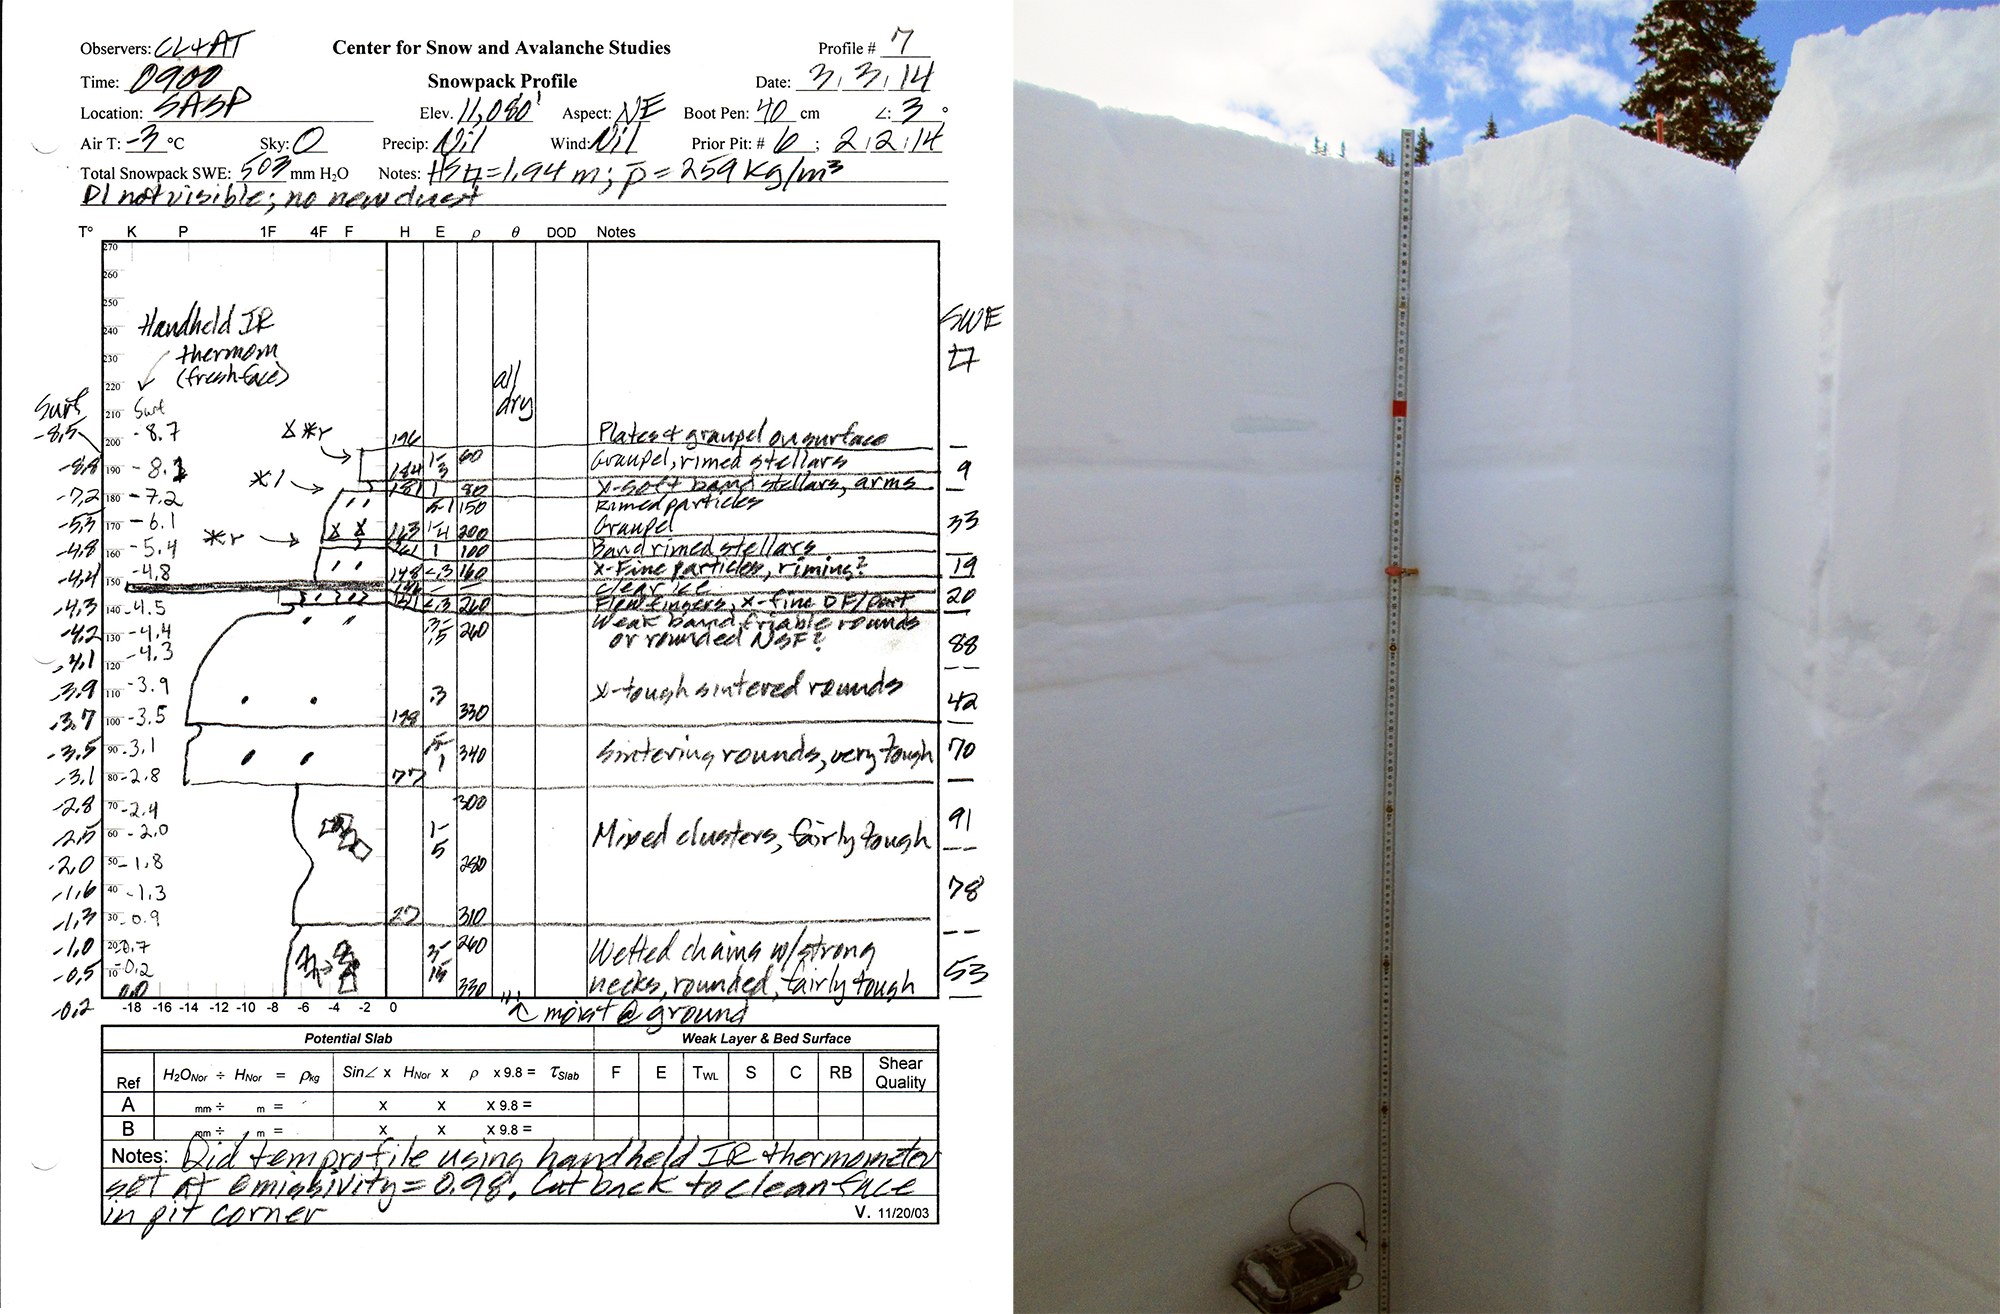 Observers: CL+AT Center for Snow and Avalanche Studies Profile # 7
Time: 0900 Snowpack Profile Date: 3, 3, 14
Location: SASP Elev. 11,080' Aspect: NE Boot Pen: 40 cm ∠: 3 °
Air T: -3 °C Sky: O Precip: Nil Wind: Nil Prior Pit: # 6 ; 2, 2, 14
Total Snowpack SWE: 503 mm H2O Notes: = 1.94 m; p̄ = 259 Kg/m³
D1 not visible; no new dust
T° K P 1F 4F F H E ρ θ DOD Notes
270
260
250
240 Handheld IR SWE
230 thermom
220 (fresh face) all
Surf 210 Surf dry
-8.5 200 -8.7 196 Plates + graupel on surface
-8.8 190 -8.1 184 1-3 60 Graupel, rimed stellars 9
-7.2 180 -7.2 181 1 80 x-soft band stellars, arms
.5-1 150 Rimed particles
-5.3 170 -6.1 163 1-4 200 Graupel 33
-4.8 160 -5.4 161 1 100 Band rimed stellars
-4.4 150 -4.8 148 <.3 160 x-Fine particles, riming? 19
146 - clear ice
-4.3 140 -4.5 141 <.3 260 Flow fingers, x-fine DF/part 20
-4.2 130 -4.4 .3-.5 260 Weak band friable rounds
or rounded NSF? 88
-4.1 120 -4.3
-3.9 110 -3.9 .3 x-tough sintered rounds 42
-3.7 100 -3.5 198 330
-3.5 90 -3.1 .5-1 340 Sintering rounds, very tough 70
-3.1 80 -2.8 77
-2.8 70 -2.4 300
-2.5 60 -2.0 1-5 Mixed clusters, fairly tough 91
-2.0 50 -1.8 280
-1.6 40 -1.3 78
-1.3 30 -0.9 27 310
-1.0 20 -0.7 3-15 260 Wetted chains w/strong
-0.5 10 -0.2 330 necks, rounded, fairly tough 53
-0.2 0.0
-18 -16 -14 -12 -10 -8 -6 -4 -2 0 moist @ ground
Potential Slab Weak Layer & Bed Surface
Ref H2ONor ÷ HNor = ρkg Sin∠ x HNor x ρ x 9.8 = τSlab F E TWL S C RB Shear Quality
A mm ÷ m = x x X 9.8 =
B mm ÷ m = x x X 9.8 =
Notes: Did temp rofile using handheld IR thermometer
set at emissivity = 0.98. Cut back to clean face
in pit corner V. 11/20/03